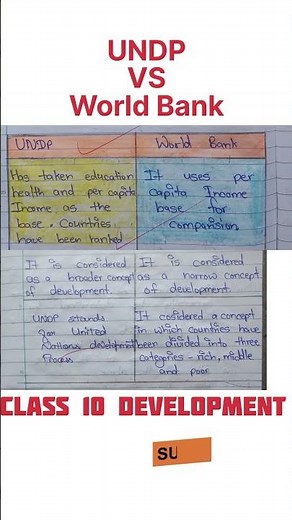 UNDP
VS
World Bank
UNDP
World Bank
Has taken education
health and per capita
Income as the
base. Countries
have been ranked
It uses per
Capita Income
base for
comparision
It is considered
as a broader concept
of development.
It is considered
as a narrow concept
of development.
UNDP stands
for United
Nations development
Progess
It cosidered a concept
in which countries have
been divided into three
categories - rich, middle
and poor
CLASS 10 DEVELOPMENT
SU